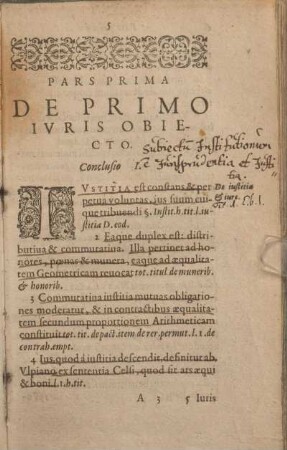 5
PARS PRIMA
DE PRIMO
IVRIS OBIE-
CTO.
Subiectū Institutionum
Conclusio I. ē Jurisprudentia et Justi
tia.
IVSTITIA est constans & per
petua voluntas, jus suum cui-
que tribuendi §. Instit. h. tit l. iu-
stitia D. eod.
De iustitia
& iuri.
2 Eaque duplex est: distri-
butiua & commutatiua. Illa pertinet ad ho-
nores, pœnas & munera, eaque ad æqualita-
tem Geometricam reuocat tot. titul de munerib.
& honorib.
3 Commutatiua iustitia mutuas obligatio-
nes moderatur, & in contractibus æqualita-
tem secundum proportionem Arithmeticam
constituit tot. tit. de pact. item de rer. permut. l. 1. de
contrah. empt.
4 Ius, quod à iustitia descendit, definitur ab
Vlpiano ex sententia Celsi, quod sit ars æqui
& boni. l. 1. h. tit.
A 3 5 Iuris